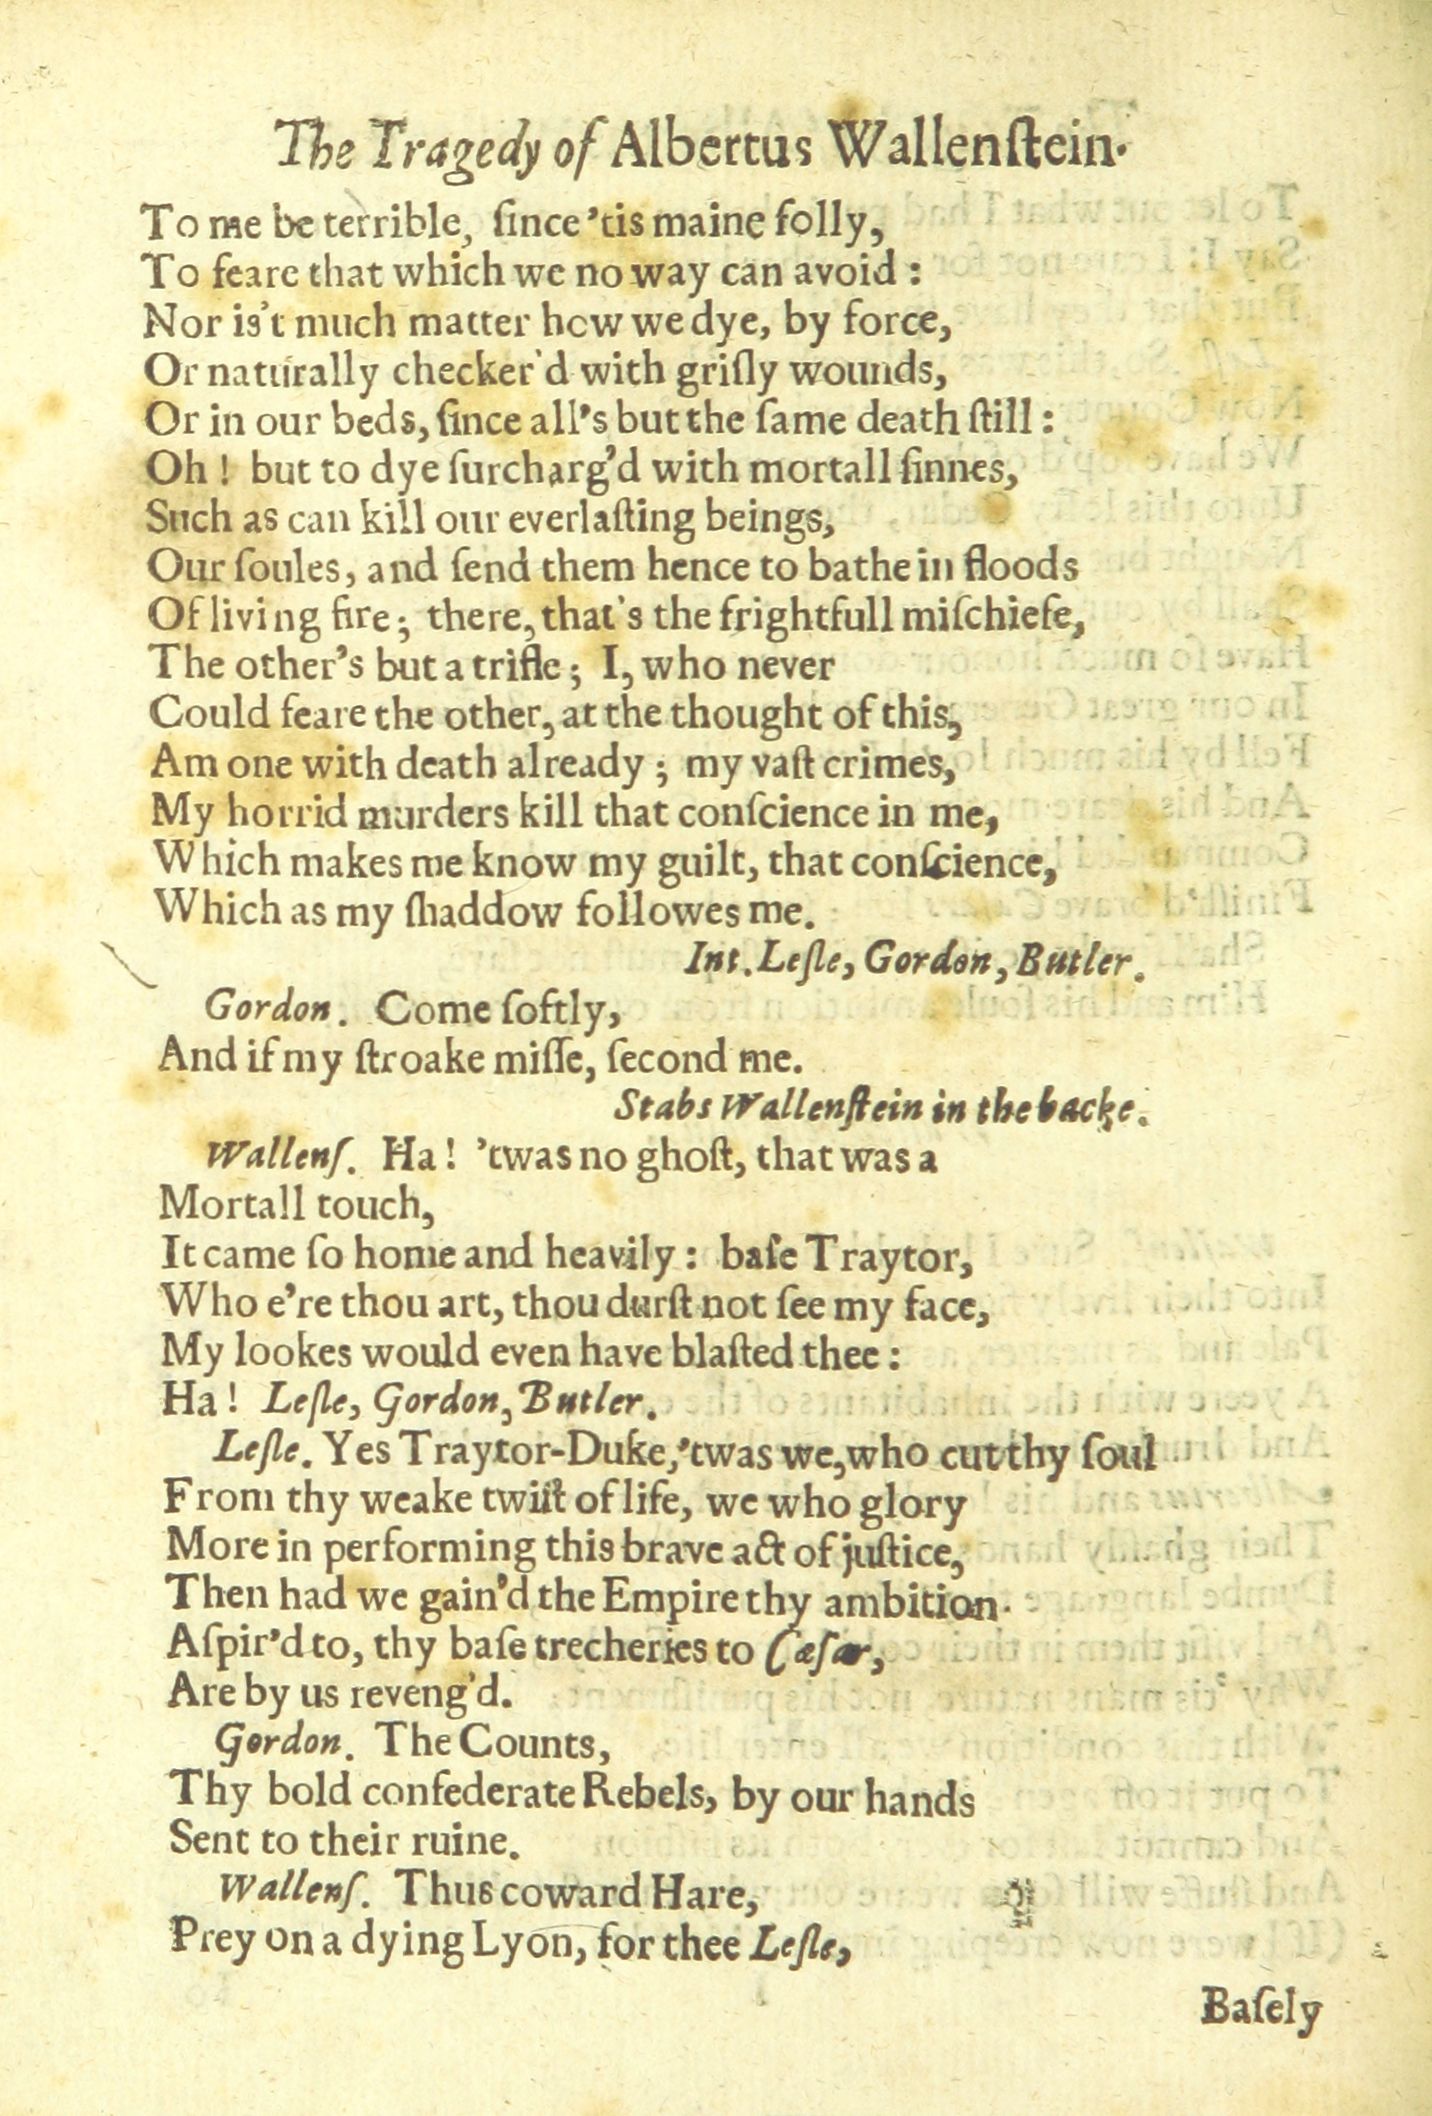 The Tragedy of Albertus Wallenſtein.
To me be terrible, ſince 'tis maine folly,
To feare that which we no way can avoid :
Nor is't much matter how we dye, by force,
Or naturally checker'd with griſly wounds,
Or in our beds, ſince all's but the ſame death ſtill :
Oh ! but to dye ſurcharg'd with mortall ſinnes,
Such as can kill our everlaſting beings,
Our ſoules, and ſend them hence to bathe in floods
Of living fire ; there, that's the frightfull miſchiefe,
The other's but a trifle ; I, who never
Could feare the other, at the thought of this,
Am one with death already ; my vaſt crimes,
My horrid murders kill that conſcience in me,
Which makes me know my guilt, that conſcience,
Which as my ſhaddow followes me.
Int. Leſle, Gordon, Butler.
Gordon. Come ſoftly,
And if my ſtroake miſſe, ſecond me.
Stabs Wallenſtein in the backe.
Wallenſ. Ha ! 'twas no ghoſt, that was a
Mortall touch,
It came ſo home and heavily : baſe Traytor,
Who e're thou art, thou durſt not ſee my face,
My lookes would even have blaſted thee :
Ha ! Leſle, Gordon, Butler.
Leſle. Yes Traytor-Duke, 'twas we, who cut thy ſoul
From thy weake twiſt of life, we who glory
More in performing this brave act of juſtice,
Then had we gain'd the Empire thy ambition
Aſpir'd to, thy baſe trecheries to Cæſar,
Are by us reveng'd.
Gordon. The Counts,
Thy bold confederate Rebels, by our hands
Sent to their ruine.
Wallenſ. Thus coward Hare,
Prey on a dying Lyon, for thee Leſle,
Baſely